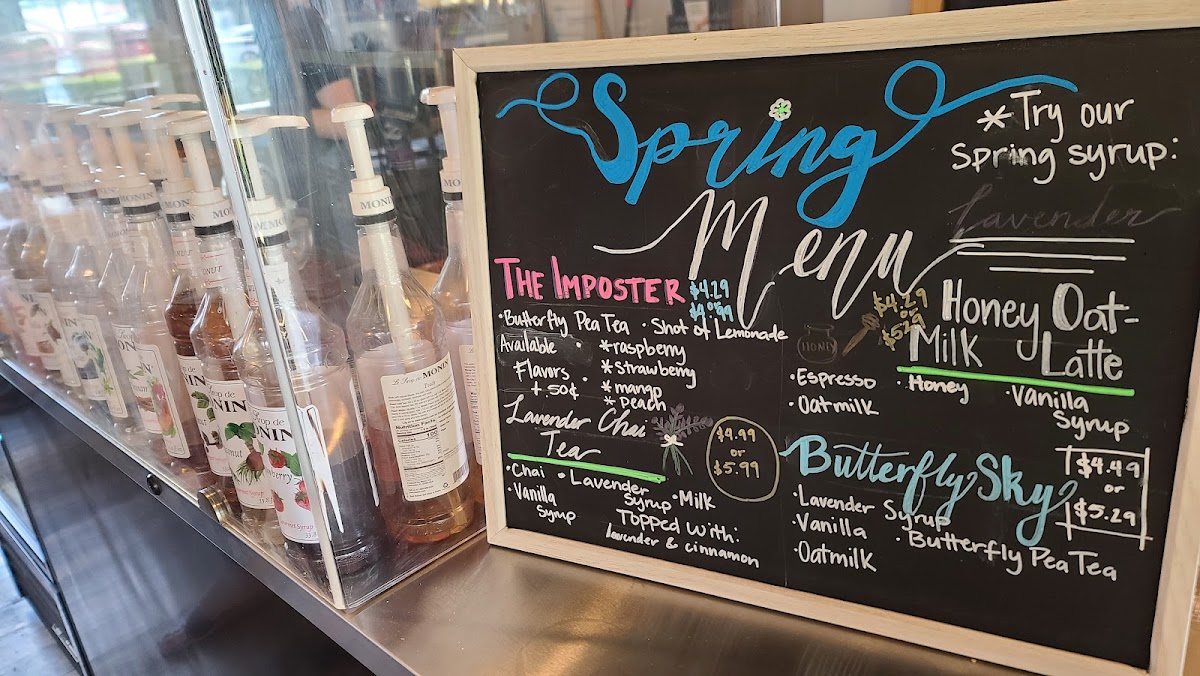 Spring
Menu
*Try our
Spring syrup:
Lavender
THE IMPOSTER
$4.29
or
·Butterfly Pea Tea · Shot of Lemonade
Available
Flavors
+ .50¢
*raspberry
*strawberry
*mango
*peach
Lavender Chai
Tea
$4.99
or
$5.99
·Chai · Lavender Syrup · Milk
·Vanilla Syrup
Topped With:
lavender & cinnamon
Honey Oat-
Milk Latte
$4.29
or
$5.29
HONEY
·Espresso · Honey · Vanilla Syrup
·Oatmilk
Butterfly Sky
$4.49
or
$5.29
·Lavender Syrup
·Vanilla · Butterfly Pea Tea
·Oatmilk
MONIN
MONIN
MONIN
Le Sirop de
MONIN